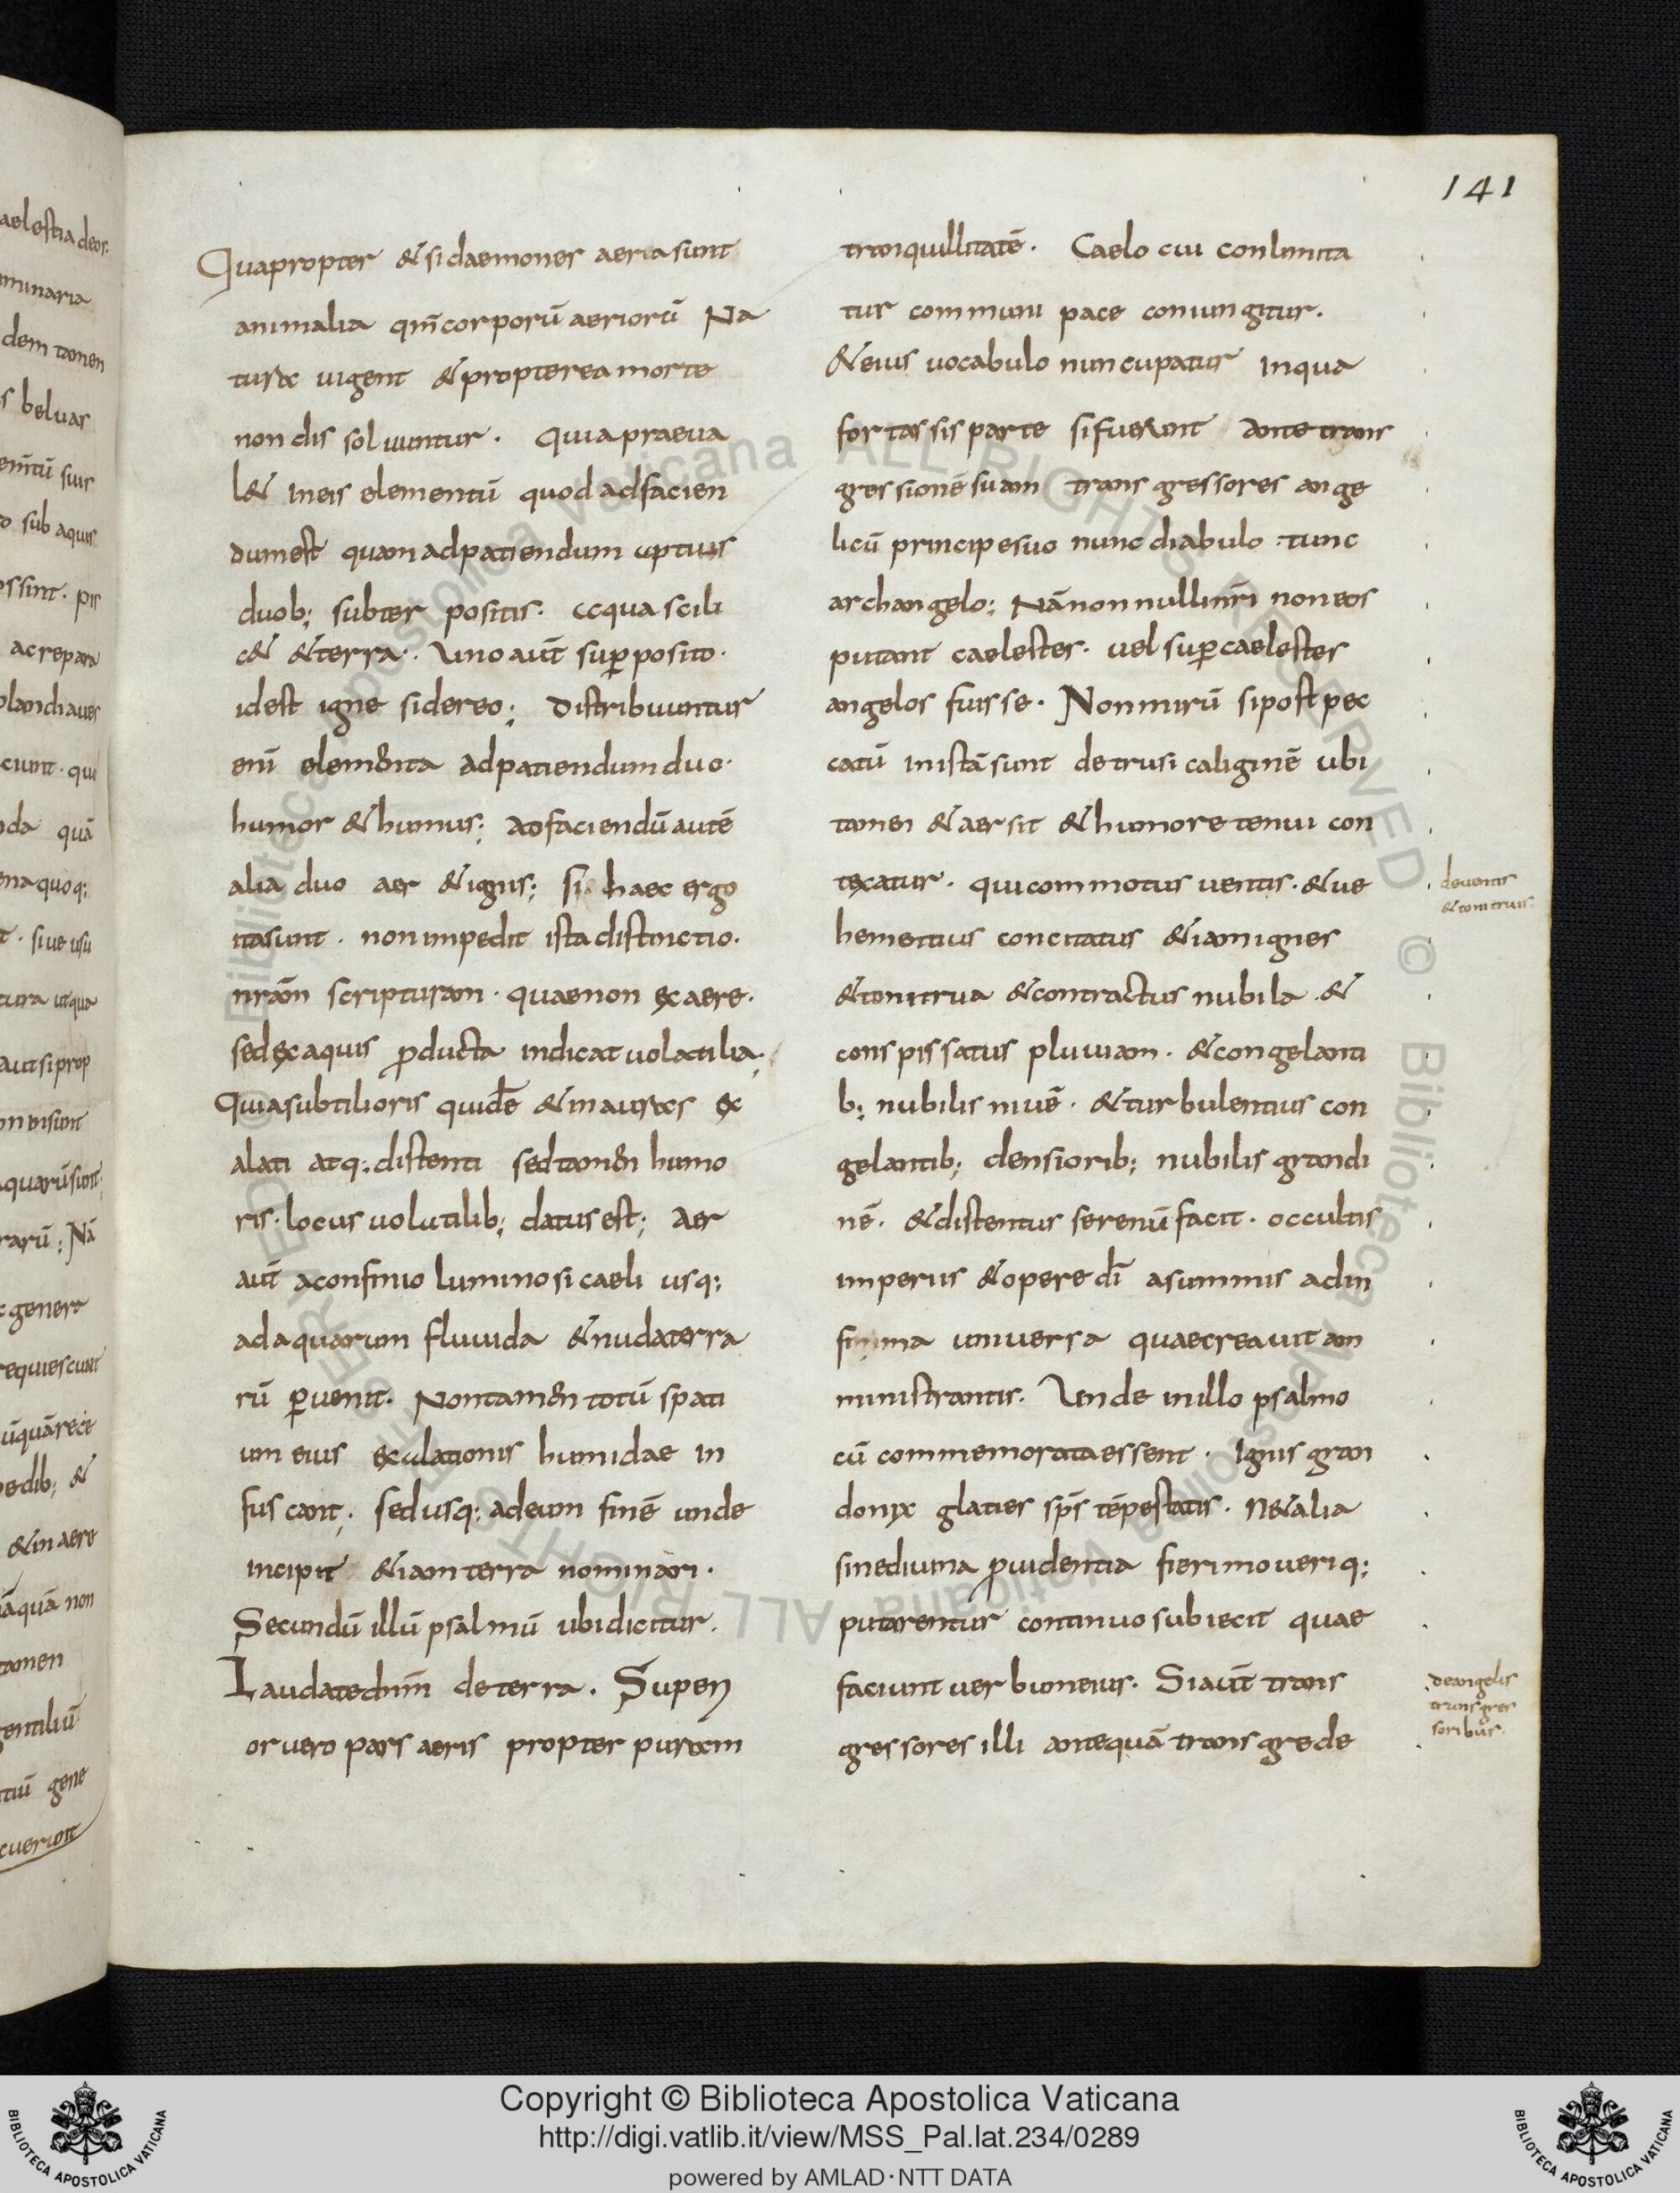 141
Quapropter & si daemones aeria sunt
animalia qm̄ corporū aeriorū Na
tura uigent & propterea morte
non dis soluuntur. Quia praeua
l& in eis elementū quod ad facien
dum est quam ad patiendum aptius
duob; subter positis. aqua scili
c& & terra. Uno aūt sup̄ posito.
id est igne sidereo; distribuuntur
enī elementa ad patiendum duo.
humor & humus; ad faciendū autē
alia duo aer & ignis; si haec ergo
ita sunt. non impedit ista distinctio.
nr̄am scripturam. quae non ex aere.
sed ex aquis p̄ducta indicat uolatilia;
Quia subtilioris quidē & in auras ex
alati atq; distenti sed tamen humo
ris. locus uolatilib; datus est; Aer
aūt a confinio luminosi caeli usq;
ad aquarum fluuida & nuda terra
rū p̄uenit. Non tamen totū spati
um eius exalationis humidae in
fuscant; sed usq; ad eum finē unde
incipit & iam terra nominari.
Secundū illū psalmū ubi dicitur.
Laudate dn̄m de terra. Superi
or uero pars aeris propter puram
tranquillitatē. Caelo cui conlimita
tur communi pace coniungitur.
& eius uocabulo nuncupatur in qua
fortassis parte si fuerunt ante trans
gressionē suam transgressores ange
licū principe suo nunc diabulo tunc
archangelo; Nā nonnulli nr̄i non eos
putant caelestes. uel sup̄caelestes
angelos fuisse. Non mirū si post pec
catū in istā sunt detrusi caliginē ubi
tamen & aer sit & humore tenui con
texatur. qui commotus uentis. & ue
hementius concitatus & iam ignes
& tonitrua & contractus nubila. &
conspissatus pluuiam. & congelanti
b; nubilis niuē. & turbulentius con
gelantib; densiorib; nubilis grandi
nē. & distentus serenū facit. occultis
imperiis & opere dī a summis ad in
fima uniuersa quae creauit am
ministrantis. Unde in illo psalmo
cū commemorata essent. Ignis gran
do nyx glaties sp̄s tēpestatis. Ne alia
sine diuina p̄uidentia fieri moueriq;
putarentur continuo subiecit quae
faciunt uerbum eius. Si aūt trans
gressores illi antequā transgrede
de uentis
& tonitruis
de angelis
transgres
soribus.
Copyright © Biblioteca Apostolica Vaticana
http://digi.vatlib.it/view/MSS_Pal.lat.234/0289
powered by AMLAD·NTT DATA